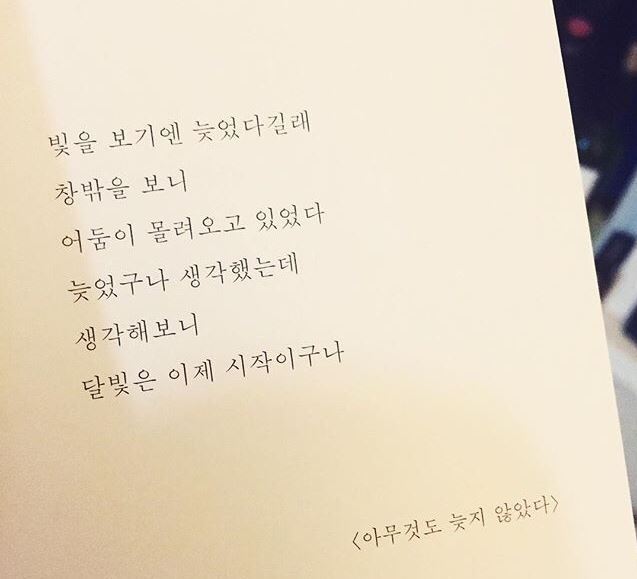 빛을 보기엔 늦었다길래
창밖을 보니
어둠이 몰려오고 있었다
늦었구나 생각했는데
생각해보니
달빛은 이제 시작이구나
<아무것도 늦지 않았다>